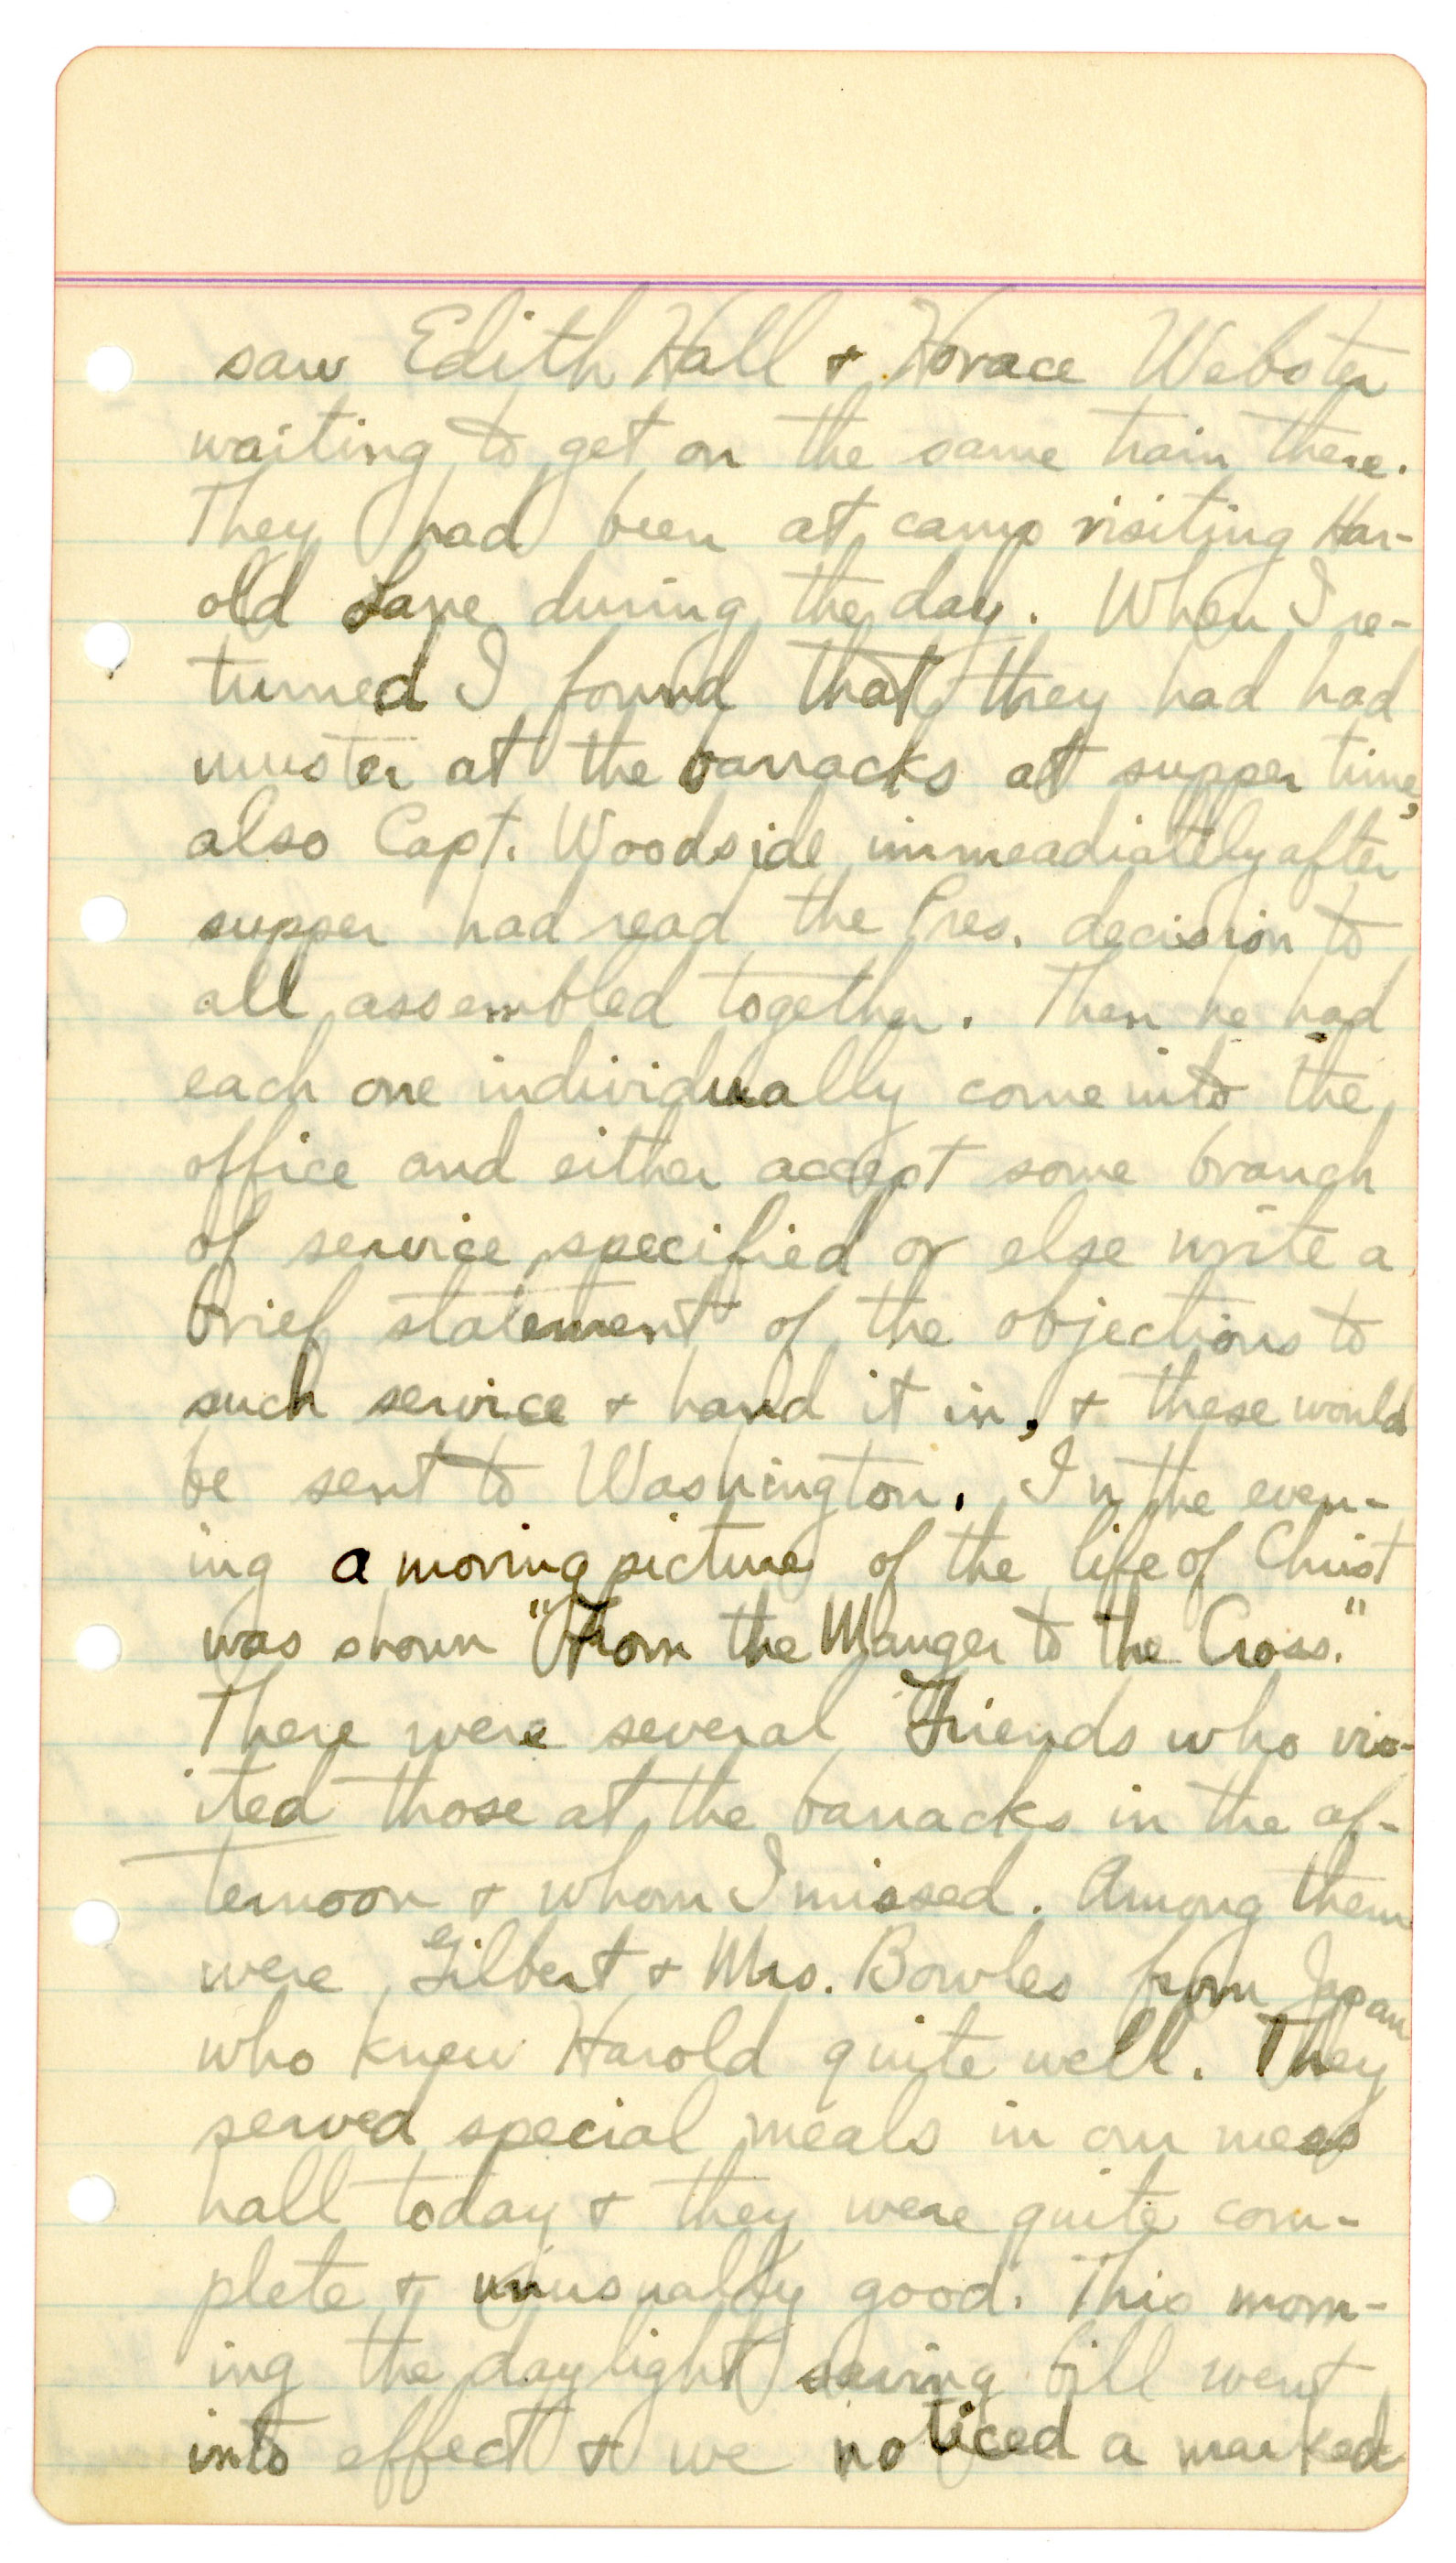 saw Edith Hall + Horace Webster
waiting to get on the same train there.
They had been at camp visiting Har-
old Lane during the day. When I re-
turned I found that they had had
muster at the barracks at supper time,
also Capt. Woodside immeadiately after
supper had read the Pres. decision to
all assembled together. Then he had
each one individually come into the
office and either accept some branch
of service specified or else write a
brief statement of the objections to
such service + hand it in, + these would
be sent to Washington. In the even-
ing a moving picture of the life of Christ
was shown "From the Manger to the Cross."
There were several Friends who vis-
ited those at the barracks in the af-
ternoon + whom I missed. Among them
were Gilbert + Mrs. Bowles from Japan
who knew Harold quite well. They
served special meals in our mess
hall today + they were quite com-
plete + unusually good. This morn-
ing the daylight saving bill went
into effect + we noticed a marked